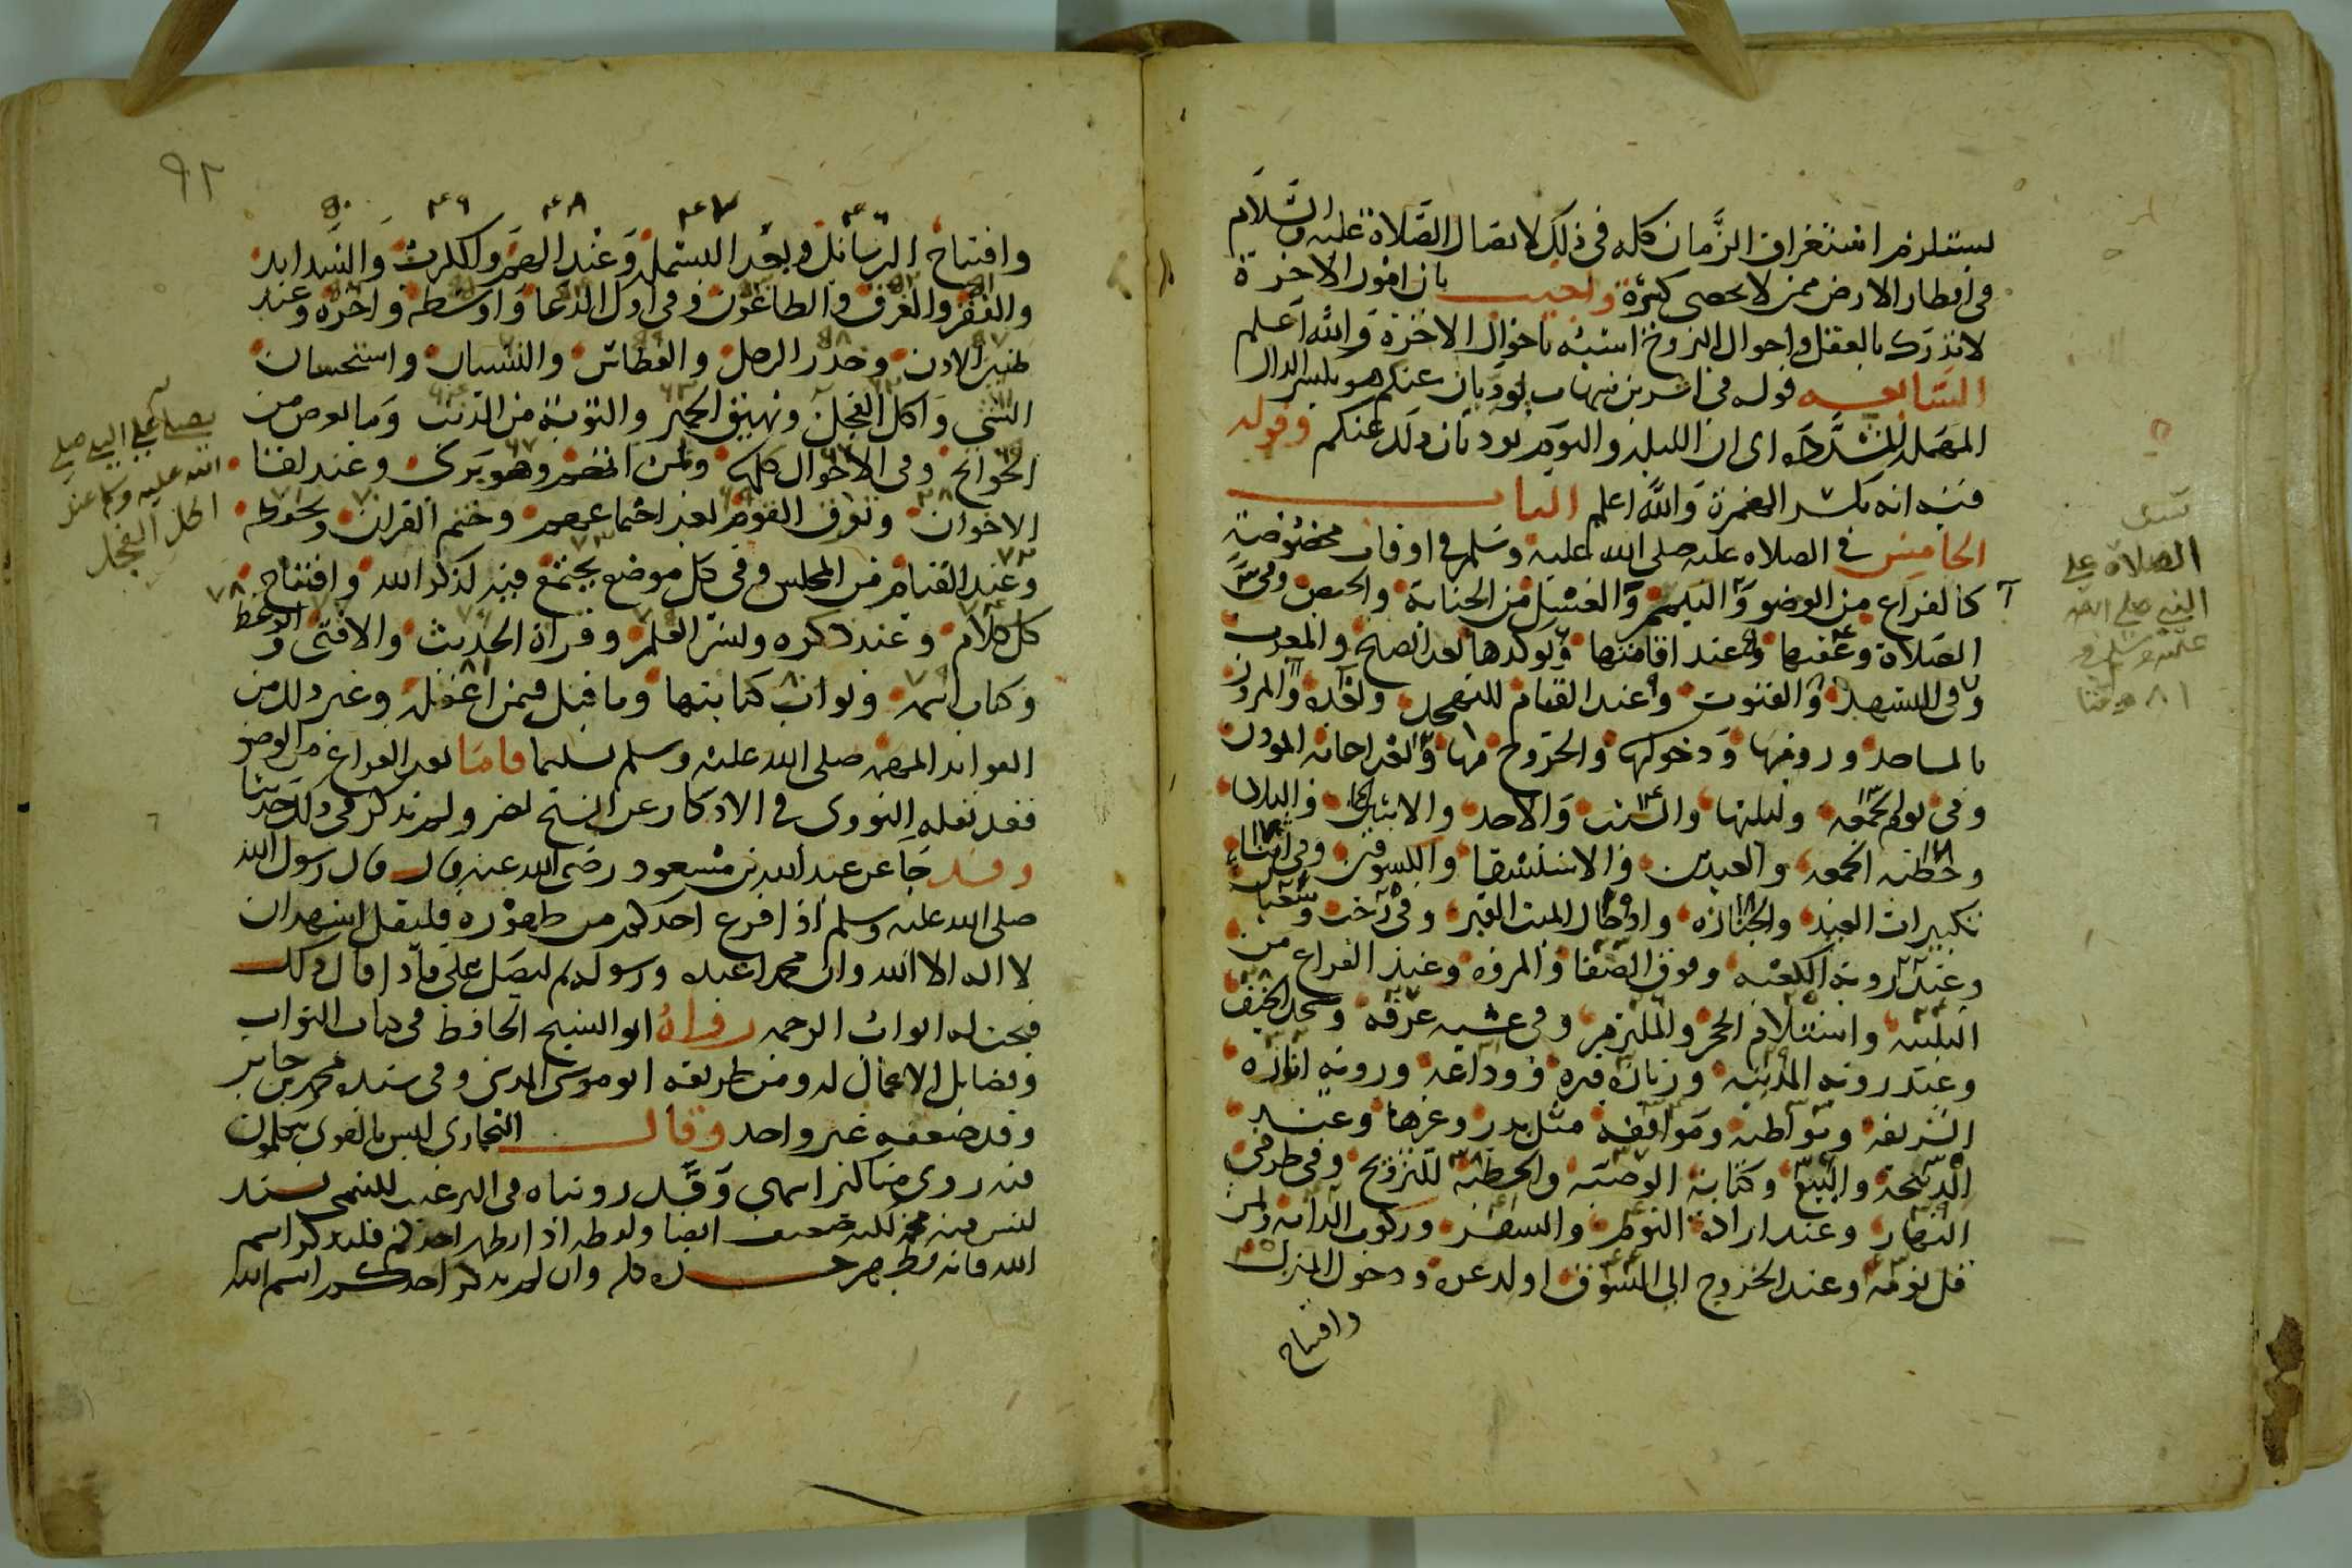 يستلزم استغراق الزمان كله في ذلك لاتصال الصلاة عليه والسلام
في اقطار الارض ممن لا يحصى كثرة واجيب بان امور الاخرة
لا تدرك بالعقل واحوال البرزخ اشبه باحوال الاخرة والله اعلم
السابعه قوله في اثر بن شهاب يوديان عنكم هو بكسر الدال
المهملة المشددة اى ان الليلة واليوم يوديان ذلك عنكم وقوله
فيه انه بكسر الهمزة والله اعلم الباب
الخامس في الصلاه عليه صلى الله عليه وسلم في اوقات مخصوصة
كالفراغ من الوضو والتيمم والغسل من الجنابة والحيض وفي
الصلاة وعقبها وعند اقامتها ويوكدها بعد الصبح والمغرب
وفي التشهد والقنوت وعند القيام للتهجد وبعده والمرور
بالمساجد ورويتها ودخولها والخروج منها وبعد اجابة الموذن
وفي يوم الجمعه وليلتها والسبت والاحد والاثنين والثلاثا
وخطبه الجمعه والعيدين والاستسقا والكسوفين وفي اثناء
تكبيرات العيد والجنازه وادخال الميت القبر وفي رجب وشعبان
وعند روية الكعبه وفوق الصفا والمروه وعند الفراغ من
التلبيه واستلام الحجر والملتزم وفي عشيه عرفه ومسجد الخيف
وعند رويه المدينه وزيارة قبره ووداعه ورويه اثاره
الشريفه ومواطنه ومواقفه مثل بدر وغيرها وعند
الذبيحة والبيع وكتابة الوصيه والخطبه للتزويج وفي طرفي
النهار وعند ارادة النوم والسفر وركوب الدابه ولمن
قل نومه وعند الخروج الى السوق او لدعوه ودخول المنزل
وافتتاح
الصلاة على
النبي صلى الله
عليه وسلم في
٨١ وقتا
٩٢
٤٦ ٤٧ ٤٨ ٤٩ ٥٠
وافتتاح الرسائل وبعد البسملة وعند الهم والكرب والشدايد
والفقر والغرق والطاعون وفي اول الدعا واوسطه واخره وعند
طنين الاذن وخدر الرجل والعطاس والنسيان واستحسان
الشي واكل الفجل ونهيق الحمير والتوبة من الذنب وما يعرض من
الحوائج وفي الاحوال كلها ولمن اتهم وهو برى وعند لقا
الاخوان وتفرق القوم بعد اجتماعهم وختم القران وحفظه
وعند القيام من المجلس وفي كل موضع يجتمع فيه لذكر الله وافتتاح
كل كلام وعند ذكره ونشر العلم وقراة الحديث والافتى والوعظ
وكتابة اسمه وثواب كتابتها وما قيل فيمن اغفله وغير ذلك من
الفوايد المهمه صلى الله عليه وسلم تسليما فاما بعد الفراغ من الوضو
فقد نقله النووى في الاذكار عن الشيخ نصر ولم يذكر في ذلك حديثا
وقد جا عن عبد الله بن مسعود رضي الله عنه قال قال رسول الله
صلى الله عليه وسلم اذا فرغ احدكم من طهوره فليقل اشهد ان
لا اله الا الله وان محمدا عبده ورسوله ثم ليصل علي فاذا قال ذلك
فتحت له ابواب الرحمه رواه ابو الشيخ الحافظ في كتاب الثواب
وفضايل الاعمال له ومن طريقه ابو موسى المديني وفي سنده محمد بن جابر
وقد ضعفه غير واحد وقال البخارى ليس بالقوى يتكلمون
فيه روى مناكير انتهى وقد رويناه في الترغيب للتيمى بسند
ليس فيه محمد لكنه ضعيف ايضا ولفظه اذا تطهر احدكم فليذكر اسم
الله فانه يطهر جسده كله وان لم يذكر احدكم اسم الله
يصلى على النبي صلى
الله عليه وسلم عند
اكل الفجل